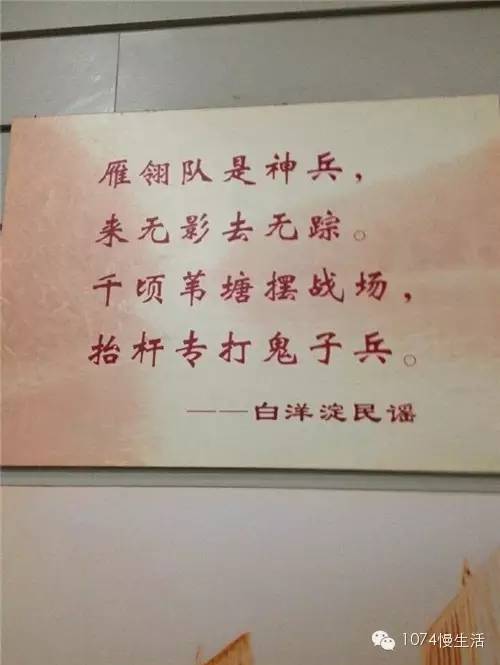 雁翎队是神兵，
来无影去无踪。
千顷苇塘摆战场，
抬杆专打鬼子兵。
——白洋淀民谣
1074慢生活